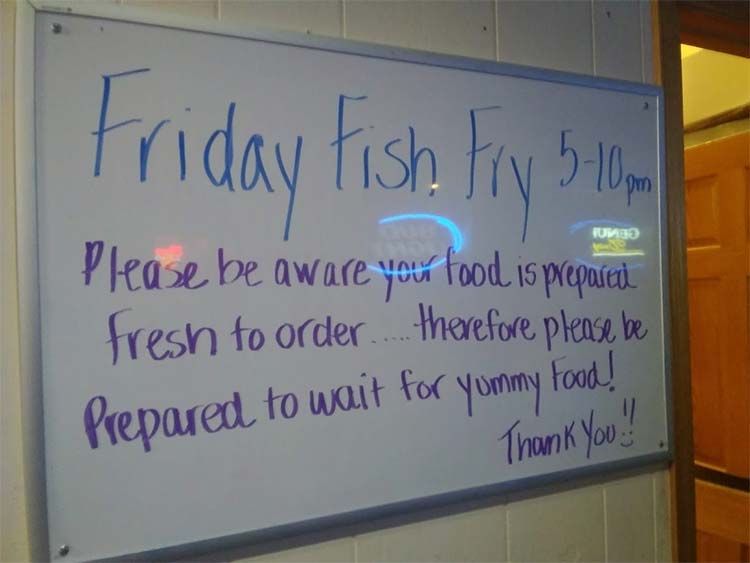 Friday Fish Fry 5-10pm
Please be aware your food is prepared
fresh to order.....therefore please be
Prepared to wait for yummy Food!
Thank You!!